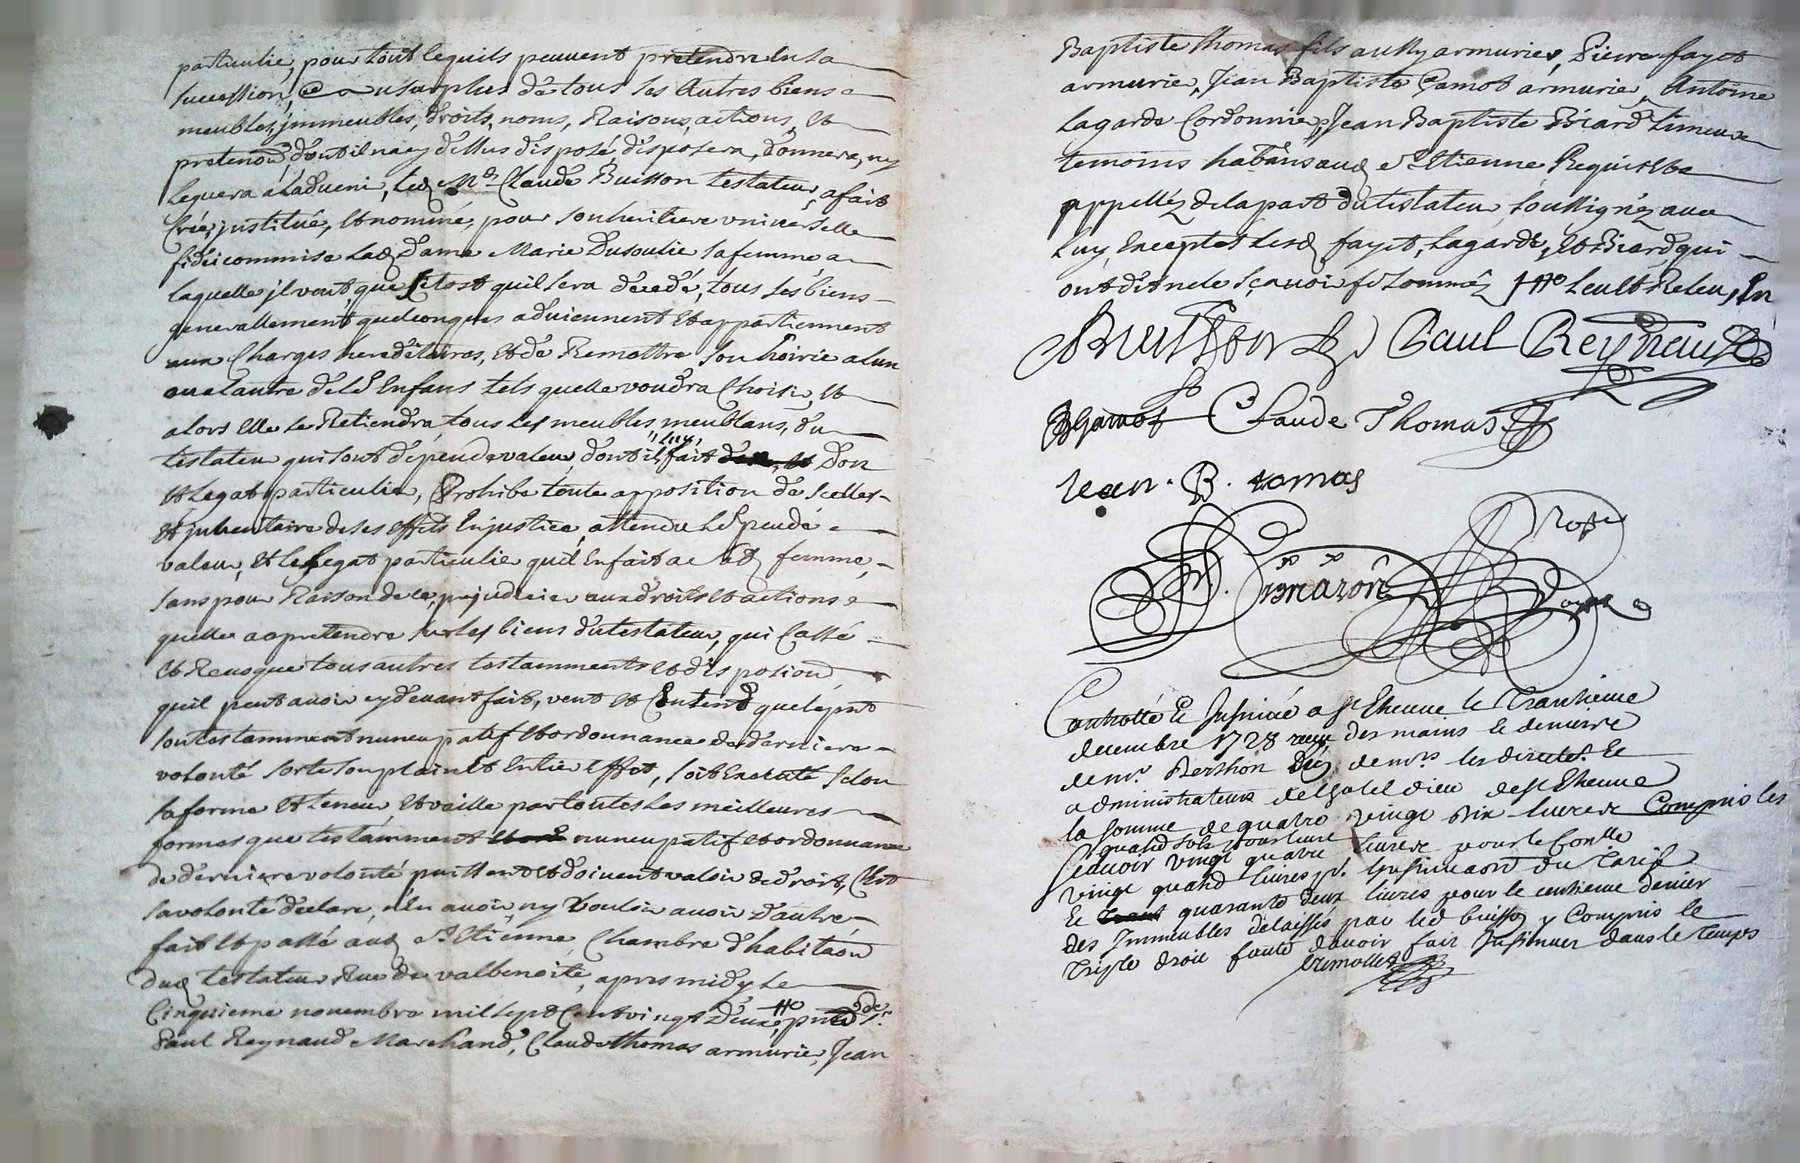 particulier, pour tout ce quils peuvent pretendre en sa
succession, et au surplus de tous ses autres biens
meubles, jmmeubles, droits, noms, Raisons, actions, et
pretenon̄ dont il na cy dessus disposé, disposera, donnera, ny
leguera a ladvenir, led. Mʳ. Claude Buisson testateur, a fait
Créé, justitué, et nommé, pour son heritiere universelle
fideicommise lad. Dame Marie Dusoulie sa femme, a
laquelle jl veut que sitost quil sera décédé, tous ses biens
generallement quelconques adviennent et appartiennent
aux Charges hereditaires, et de Remettre son hoirie a lun
ou a lautre de ses Enfans tels quelle voudra Choisir, et
alors elle se Retiendra, tous les meubles meublans, du
testateur qui sont de peu de valeur, dont il luy fait don
et legat particulier, Prohibe toute apposition de scelles
et jnventaire de ses effets En justice, attendu le peu de
valeur, et le legat particulier quil En fait a lad. femme,
sans pour Raison de ce, prejudicier aux droits et actions
quelle a a pretendre sur les biens du testateur, qui Casse
et Revoque tous autres testamments et disposion̄
quil peut avoir cy devant fait, veut et Entend que le pnt
son testamment nuncupatif et ordonnance de derniere
volonté sorte son plain et Entier effet, soit Executé selon
sa forme et teneur et vaille par toutes les meilleures
formes que testamment nuncupatif et ordonnance
de derniere volonté puissent et doivent valoir de droit, C'est
sa volonté declare, n'En avoir, ny vouloir avoir d'autre,
fait et passé aud. Sᵗ. Etienne Chambre d'habitaōn
dud. testateur Rue de valbenoite, apres midy le
Cinquieme novembre mil sept Cent vingt deux, pnt
Paul Reynaud Marchand, Claude thomas armurier, Jean
Baptiste thomas fils aussy armurier, Pierre fayot
armurier, Jean Baptiste Gamot armurier, Antoine
Lagarde Cordonnier, Jean Baptiste Biard
temoins habitans aud. Sᵗ. Etienne Requis et
appellez de la part du testateur soussignéz avec
luy, Exceptes lesd. fayot, Lagarde, et Biard qui
ont dit ne le sçavoir fe sommēz
Buisson Paul Reynaud
JBgamot Claude Thomas
Jean. B. tomas
Controllé et Insinué a Sᵗ Etienne le Trantieme
decembre 1728 receu des mains et deniers
de mʳ. Berthon de mʳˢ les directeʳˢ. et
administrateurs de lhotel dieu de Sᵗ Etienne
la somme de quatre vingt dix livres Compris les
quatre sols pour livre
Scavoir vingt quatre livres pour le Conlle
vingt quatre livres pʳ. Insinuaōn du tarif
Et quarante deux livres pour le centieme denier
des Immeubles delaissés par led buisson y Compris le
Triple droit faute davoir fait Insinuer dans le temps